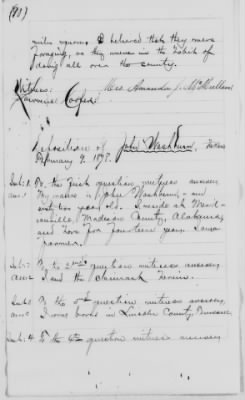 miles square I believed that they were
foraging, as they were in the habit of
doing all over the county.
Witness: Mrs. Amanda J. McMullen
Cooper
Deposition of John Washburn, taken
February 9. 1898.
Int. 1 To the first question, witness answers
ans. 1 My name is John Washburn and
years old. I reside at
Madison County, Alabama,
and have for fourteen years. I am a
Farmer.
Int. 2 To the 2nd question witness answers
ans 2 I and the Claimant
Int. 3 To the question witness answers,
ans I was born in Lincoln County, Tennessee.
Int. 4 To the 4th question witness answers